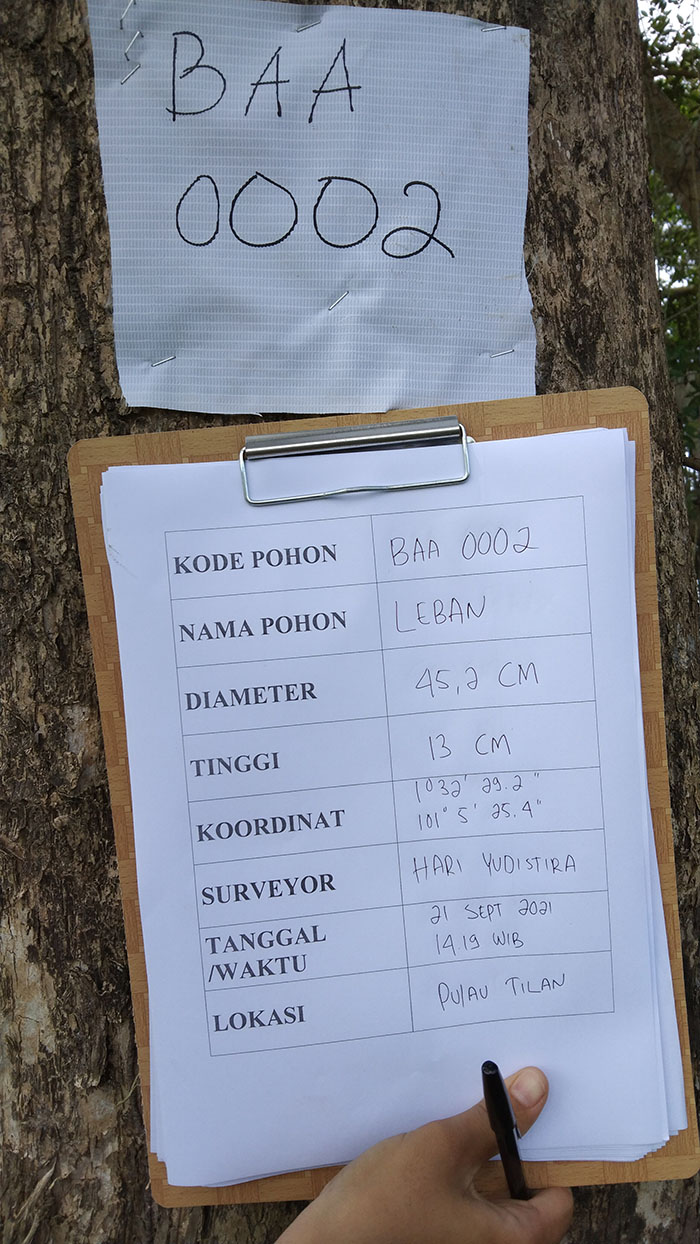 BAA
0002
KODE POHON BAA 0002
NAMA POHON LEBAN
DIAMETER 45,2 CM
TINGGI 13 CM
KOORDINAT 1°32' 29.2"
101° 5' 25.4"
SURVEYOR HARI YUDISTIRA
TANGGAL 21 SEPT 2021
/WAKTU 14.19 WIB
LOKASI PULAU TILAN